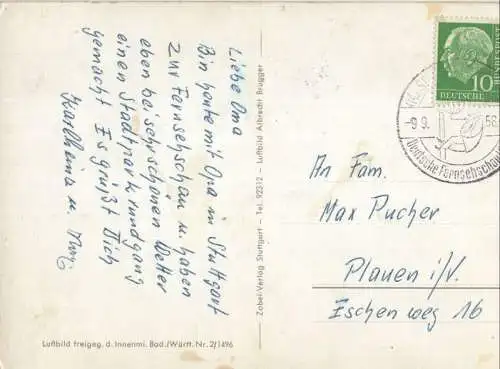 Liebe Oma
Bin heute mit Opa in Stuttgart
zur Fernsehschau u. haben
eben bei sehr schönen Wetter
einen Stadtparkrundgang
gemacht Es grüßt Dich
Karlheinz u.
Luftbild freigeg. d. Innenmi. Bad./Württ. Nr. 2/1496
Zobel-Verlag Stuttgart - Tel. 92312 - Luftbild Albrecht Brugger
DEUTSCHE
10
-9 9. 56
Deutsche Fernsehschau
An Fam.
Max Pucher
Plauen i/V.
Eschenweg 16